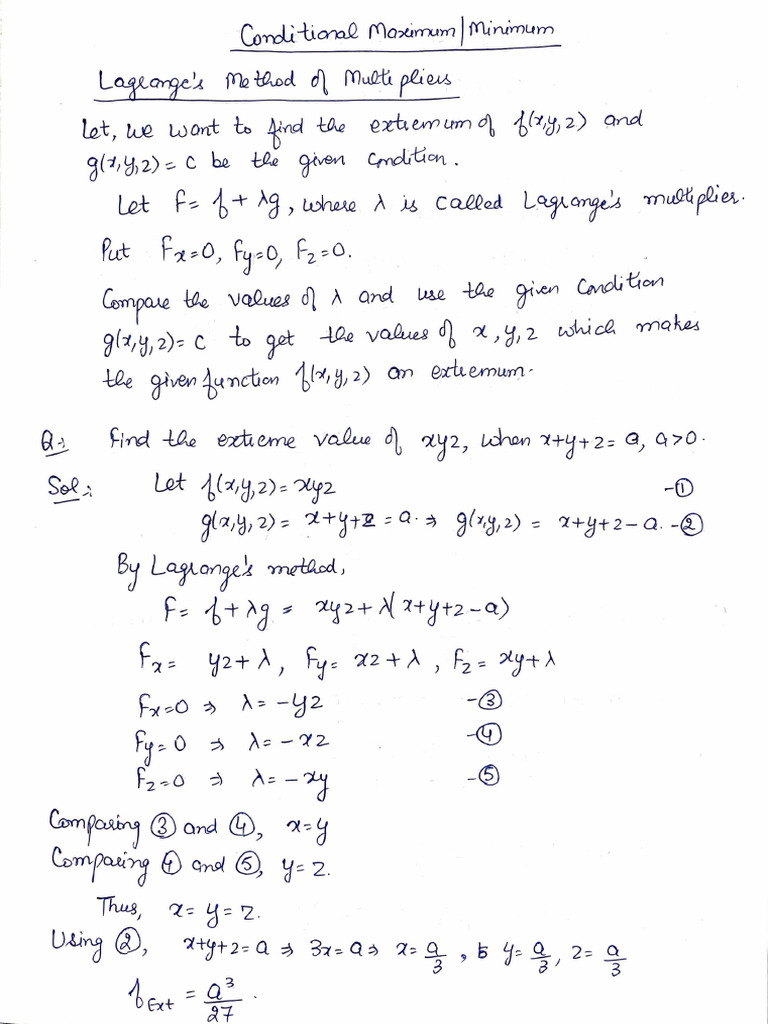 Conditional Maximum/Minimum
Lagrange's Method of Multipliers
Let, we want to find the extremum of f(x,y,z) and
g(x,y,z) = c be the given condition.
Let F = f + λg, where λ is called Lagrange's multiplier.
Put Fx=0, Fy=0, Fz=0.
Compare the values of λ and use the given condition
g(x,y,z) = c to get the values of x, y, z which makes
the given function f(x,y,z) an extremum.
Q:- Find the extreme value of xyz, when x+y+z = a, a>0.
Sol:- Let f(x,y,z) = xyz -①
g(x,y,z) = x+y+z = a. ⇒ g(x,y,z) = x+y+z-a. -②
By Lagrange's method,
F = f + λg = xyz + λ(x+y+z-a)
Fx = yz + λ, Fy = xz + λ, Fz = xy + λ
Fx=0 ⇒ λ = -yz -③
Fy = 0 ⇒ λ = -xz -④
Fz = 0 ⇒ λ = -xy -⑤
Comparing ③ and ④, x=y
Comparing ④ and ⑤, y = z.
Thus, x = y = z.
Using ②, x+y+z = a ⇒ 3x = a ⇒ x = a/3, y = a/3, z = a/3
fExt = a³/27.